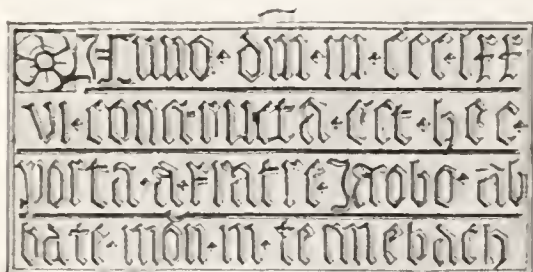 Anno · dni · m · ccc · lxx
vi · constructa · est · hec ·
porta · a · fratre · Jacobo · ab
bate · mōn · in · tennebach